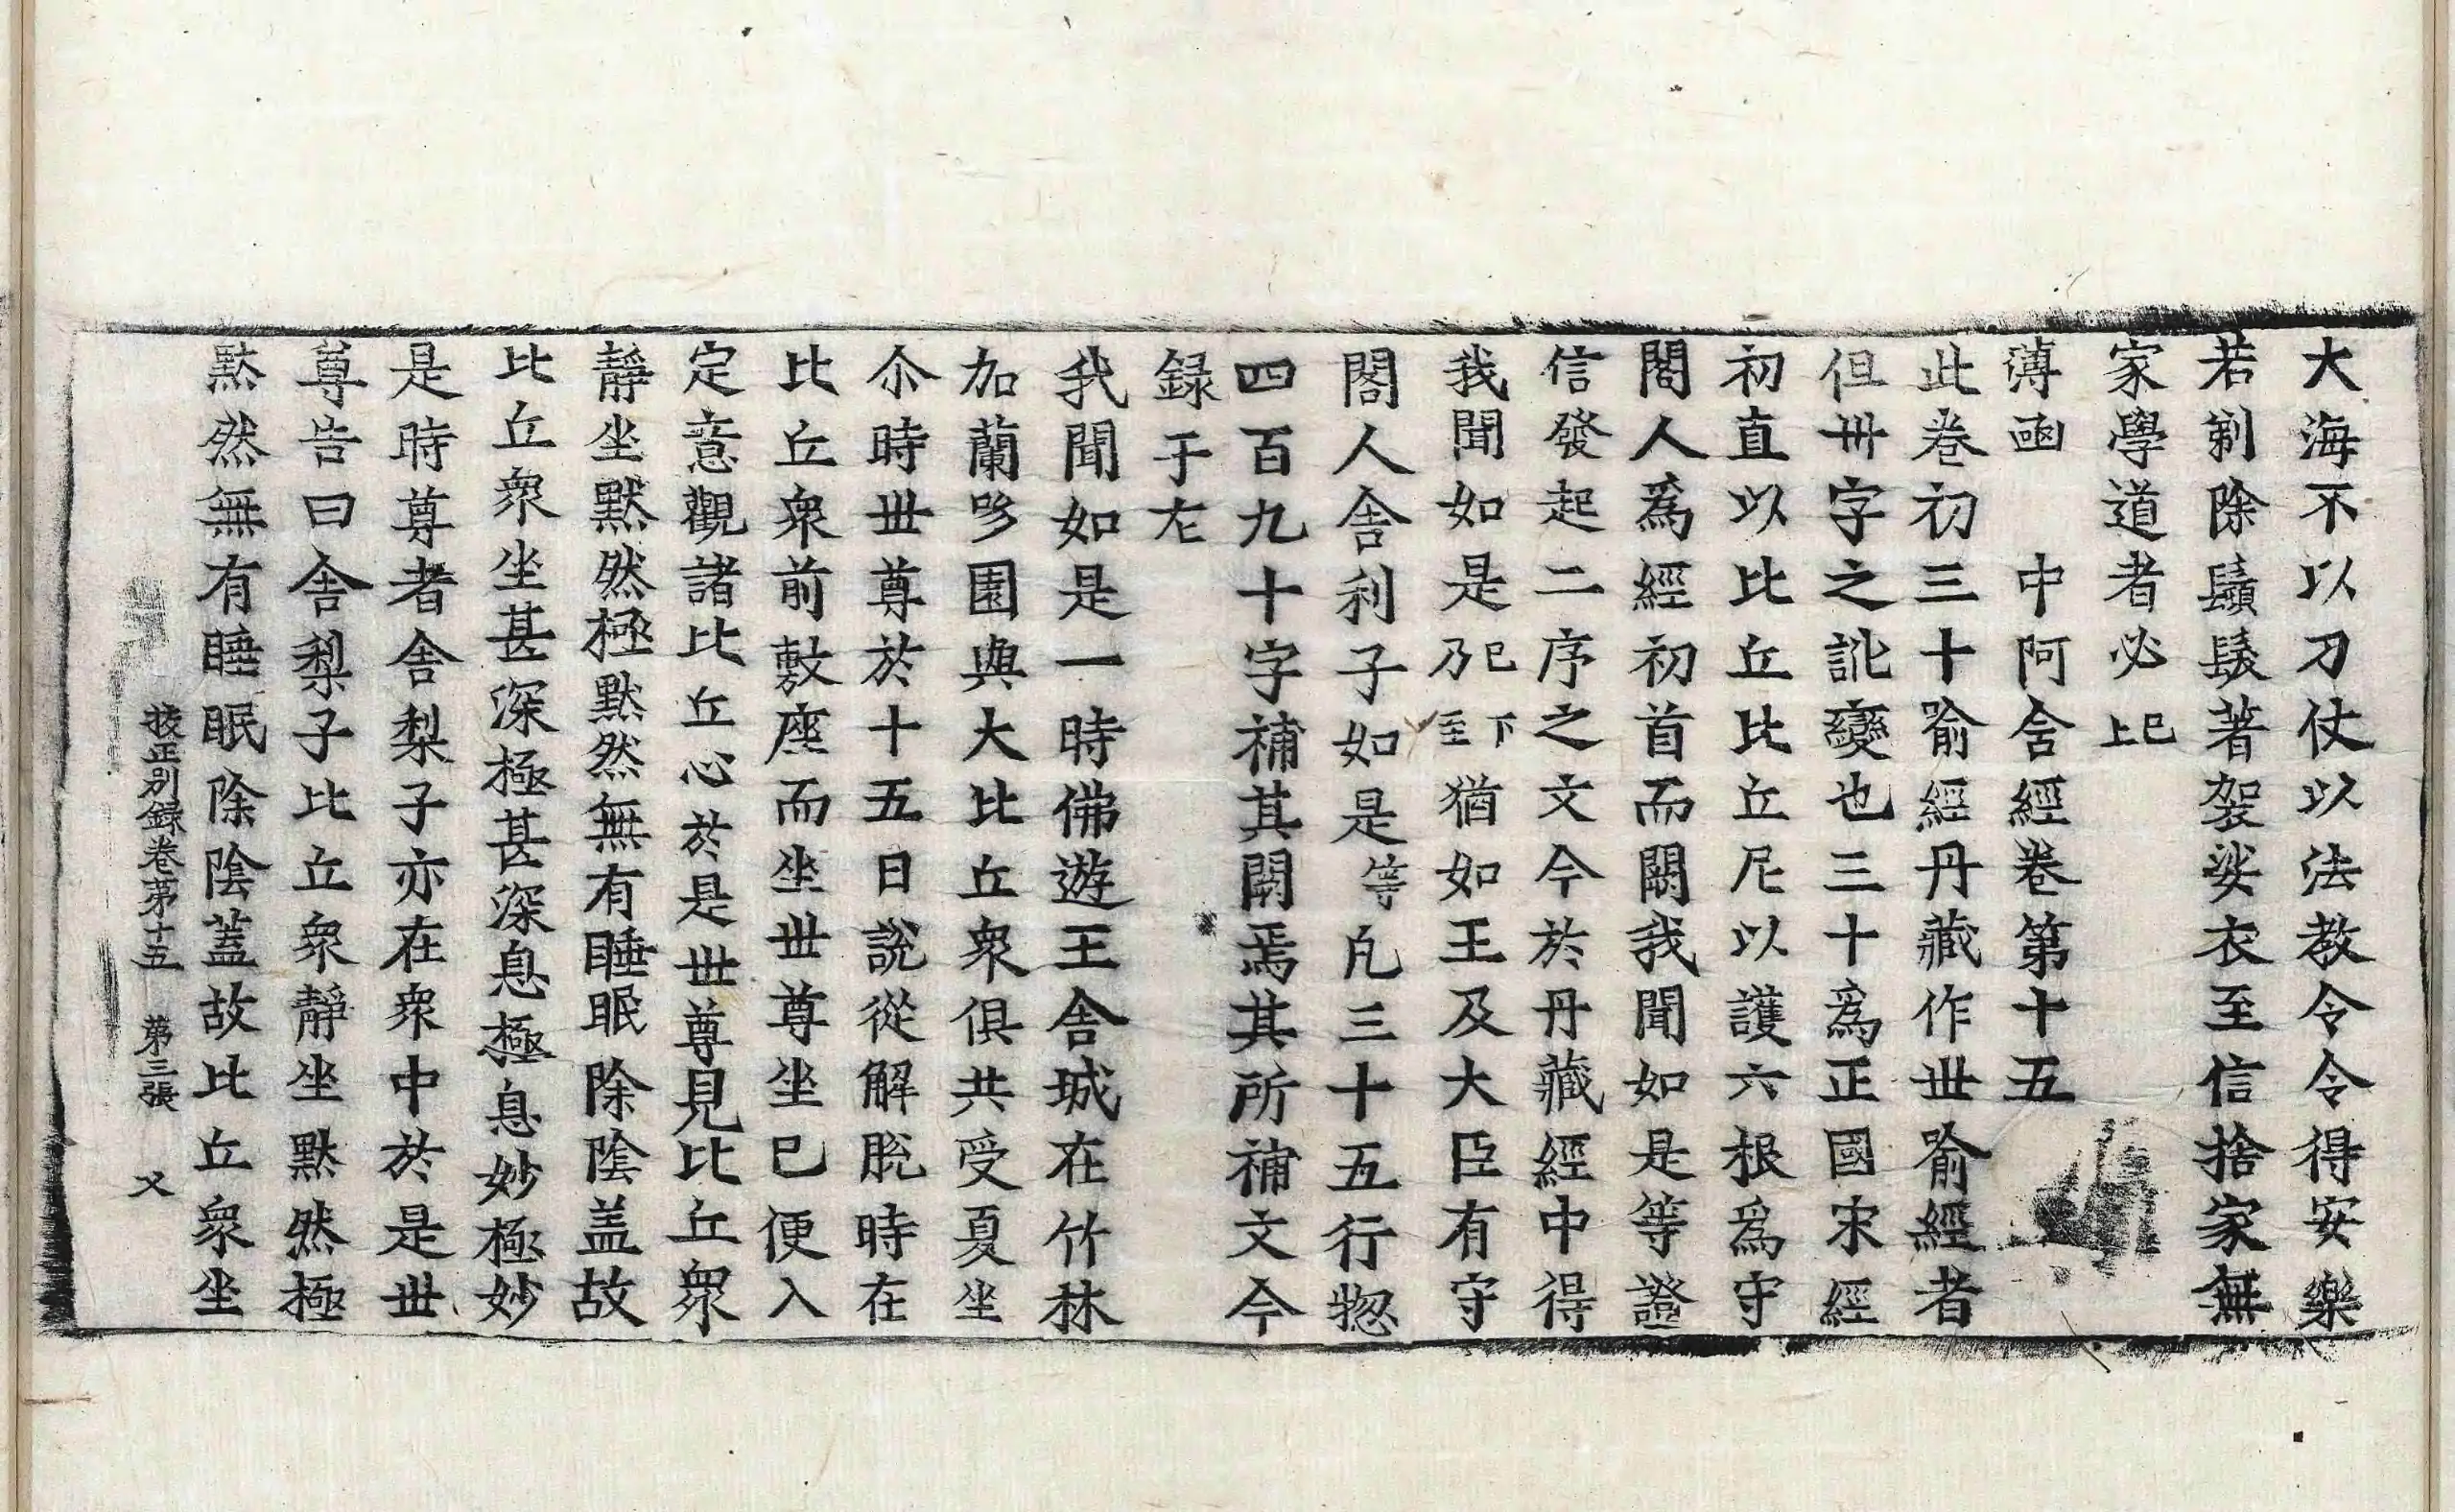 大海不以刀仗以法教令令得安樂
若剃除鬚髮著袈裟衣至信捨家無
家學道者必已上
薄函　中阿含經卷第十五
此卷初三十喻經丹藏作丗喻經者
但卅字之訛變也三十爲正國宋經
初直以比丘比丘尼以護六根爲守
閤人爲經初首而闕我聞如是等證
信發起二序之文今於丹藏經中得
我聞如是已下乃至猶如王及大臣有守
閤人舍利子如是等凡三十五行惣
四百九十字補其闕焉其所補文今
録于左
我聞如是一時佛遊王舍城在竹林
加蘭哆園與大比丘衆俱共受夏坐
尒時世尊於十五日說從解脫時在
比丘衆前敷座而坐世尊坐已便入
定意觀諸比丘心於是世尊見比丘衆
靜坐默然極默然無有睡眠除陰盖故
比丘衆坐甚深極甚深息極息妙極妙
是時尊者舍梨子亦在衆中於是世
尊告曰舍梨子比丘衆靜坐默然極
默然無有睡眠除陰蓋故比丘衆坐
挍正別録卷第十五　第三張　乂